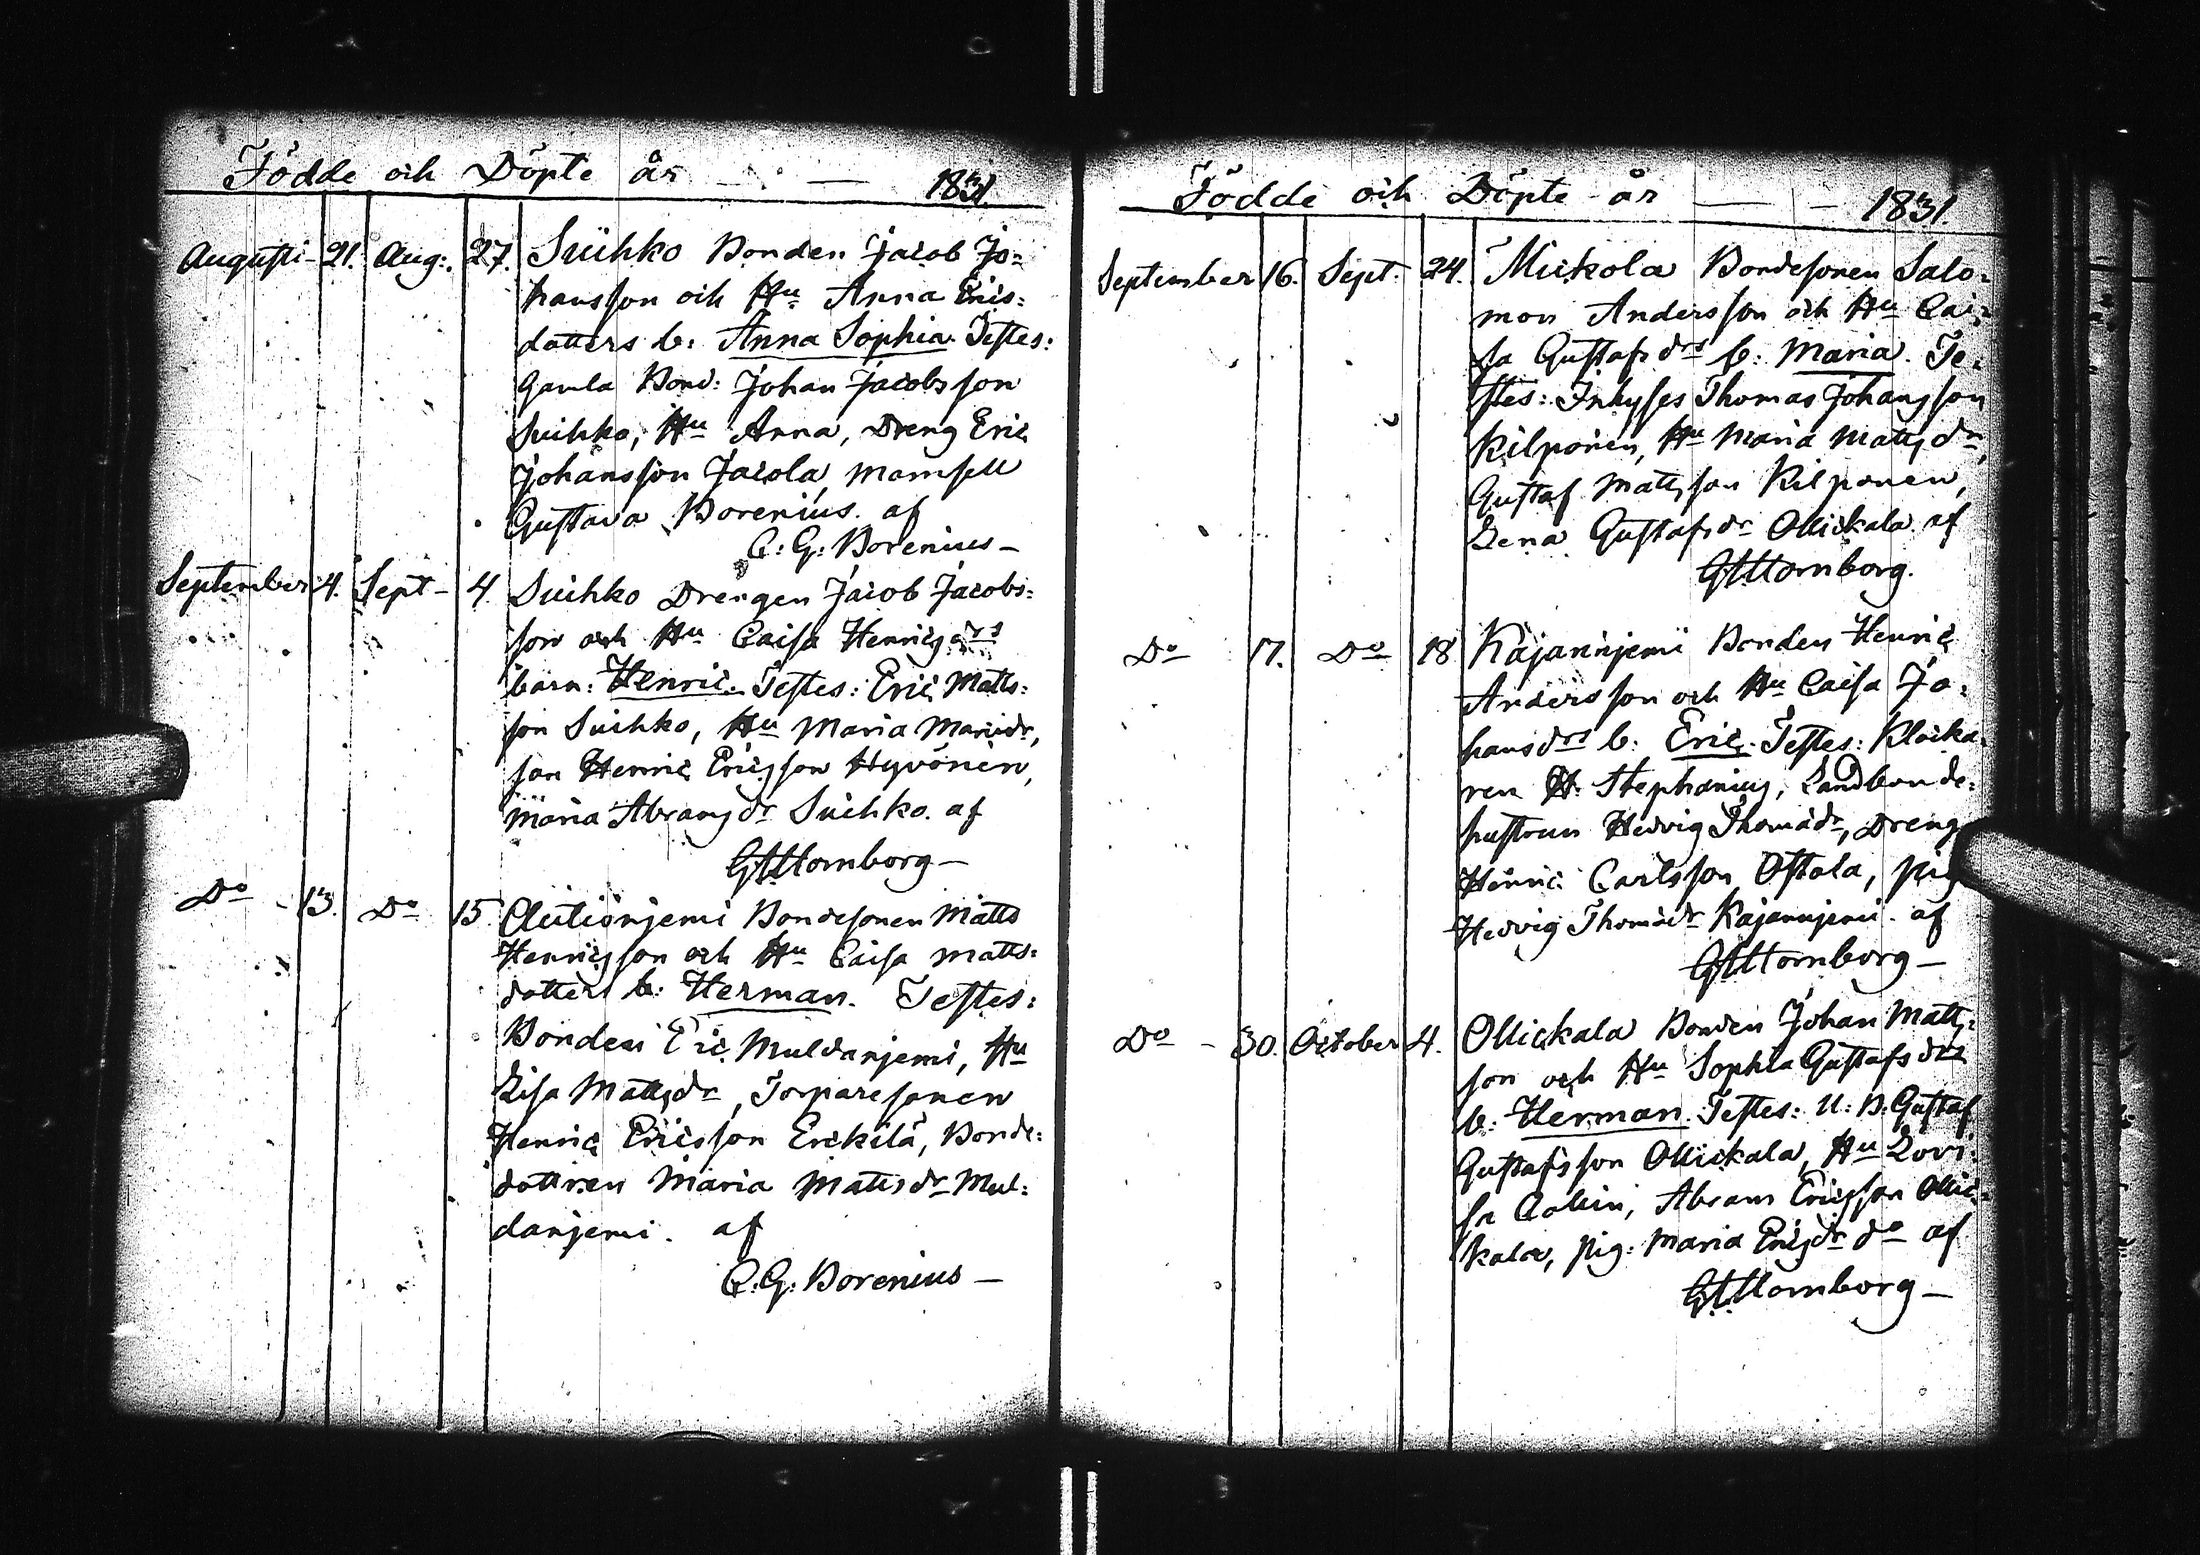 Födde och Döpte år — 1831
Augusti 21. Aug: 27. Suihko Bonden Jacob Jo=
hansson och Hu Anna Erics=
dotters b: Anna Sophia. Testes:
Gamla Bond: Johan Jacobsson
Suihko, Hu Anna, Dreng Eric
Johansson Jacola, Mamsell
Gustava Borenius. af
C: G: Borenius —
September 4. Sept — 4. Suihko Drengen Jacob Jacobs=
son och Hu Caisa Henricsdrs
barn: Henric. Testes: Eric Matts=
son Suihko, Hu Maria Mariædr,
son Henric Ericsson Hyvönen,
Maria Abramsdr Suihko. af
Hornborg —
Do 13. Do 15. Autionjemi Bondesonen Matts
Henricsson och Hu Caisa Matts=
dotters b: Herman. Testes:
Bonden Eric Muldanjemi, Hu
Lisa Mattsdr, Torparesonen
Henric Ericsson Erickilä, Bonde=
dottren Maria Mattsdr Mul=
danjemi. af
C. G: Borenius —
Födde och Döpte år — — 1831.
September 16. Sept. 24. Mickola Bondesonen Salo=
mon Andersson och Hu Cai=
sa Gustafsdrs b: Maria. Te=
stes: Inhyses Thomas Johansson
Kilponen, Hu Maria Mattsdr,
Gustaf Mattsson Kilponen,
Lena Gustafsdr Ollickala. af
Hornborg.
Do 17. Do 18 Kajannjemi Bonden Henric
Andersson och Hu Caisa Jo=
hansdrs b: Eric. Testes: Klocka=
ren H. Stephanius, Landbonde=
hustrun Hedvig Thomædr, Dreng
Henric Carlsson Ostola, pig
Hedvig Thomædr Kajannjemi. af
Hornborg —
Do — 30. October 4. Ollickala Bonden Johan Matts=
son och Hu Sophia Gustafsdrs
b: Herman. Testes: U: B: Gustaf
Gustafsson Ollickala, Hu Lovi=
sa Abram Ericsson Ollic=
kala, pig: Maria Ericsdr do af
Hornborg —